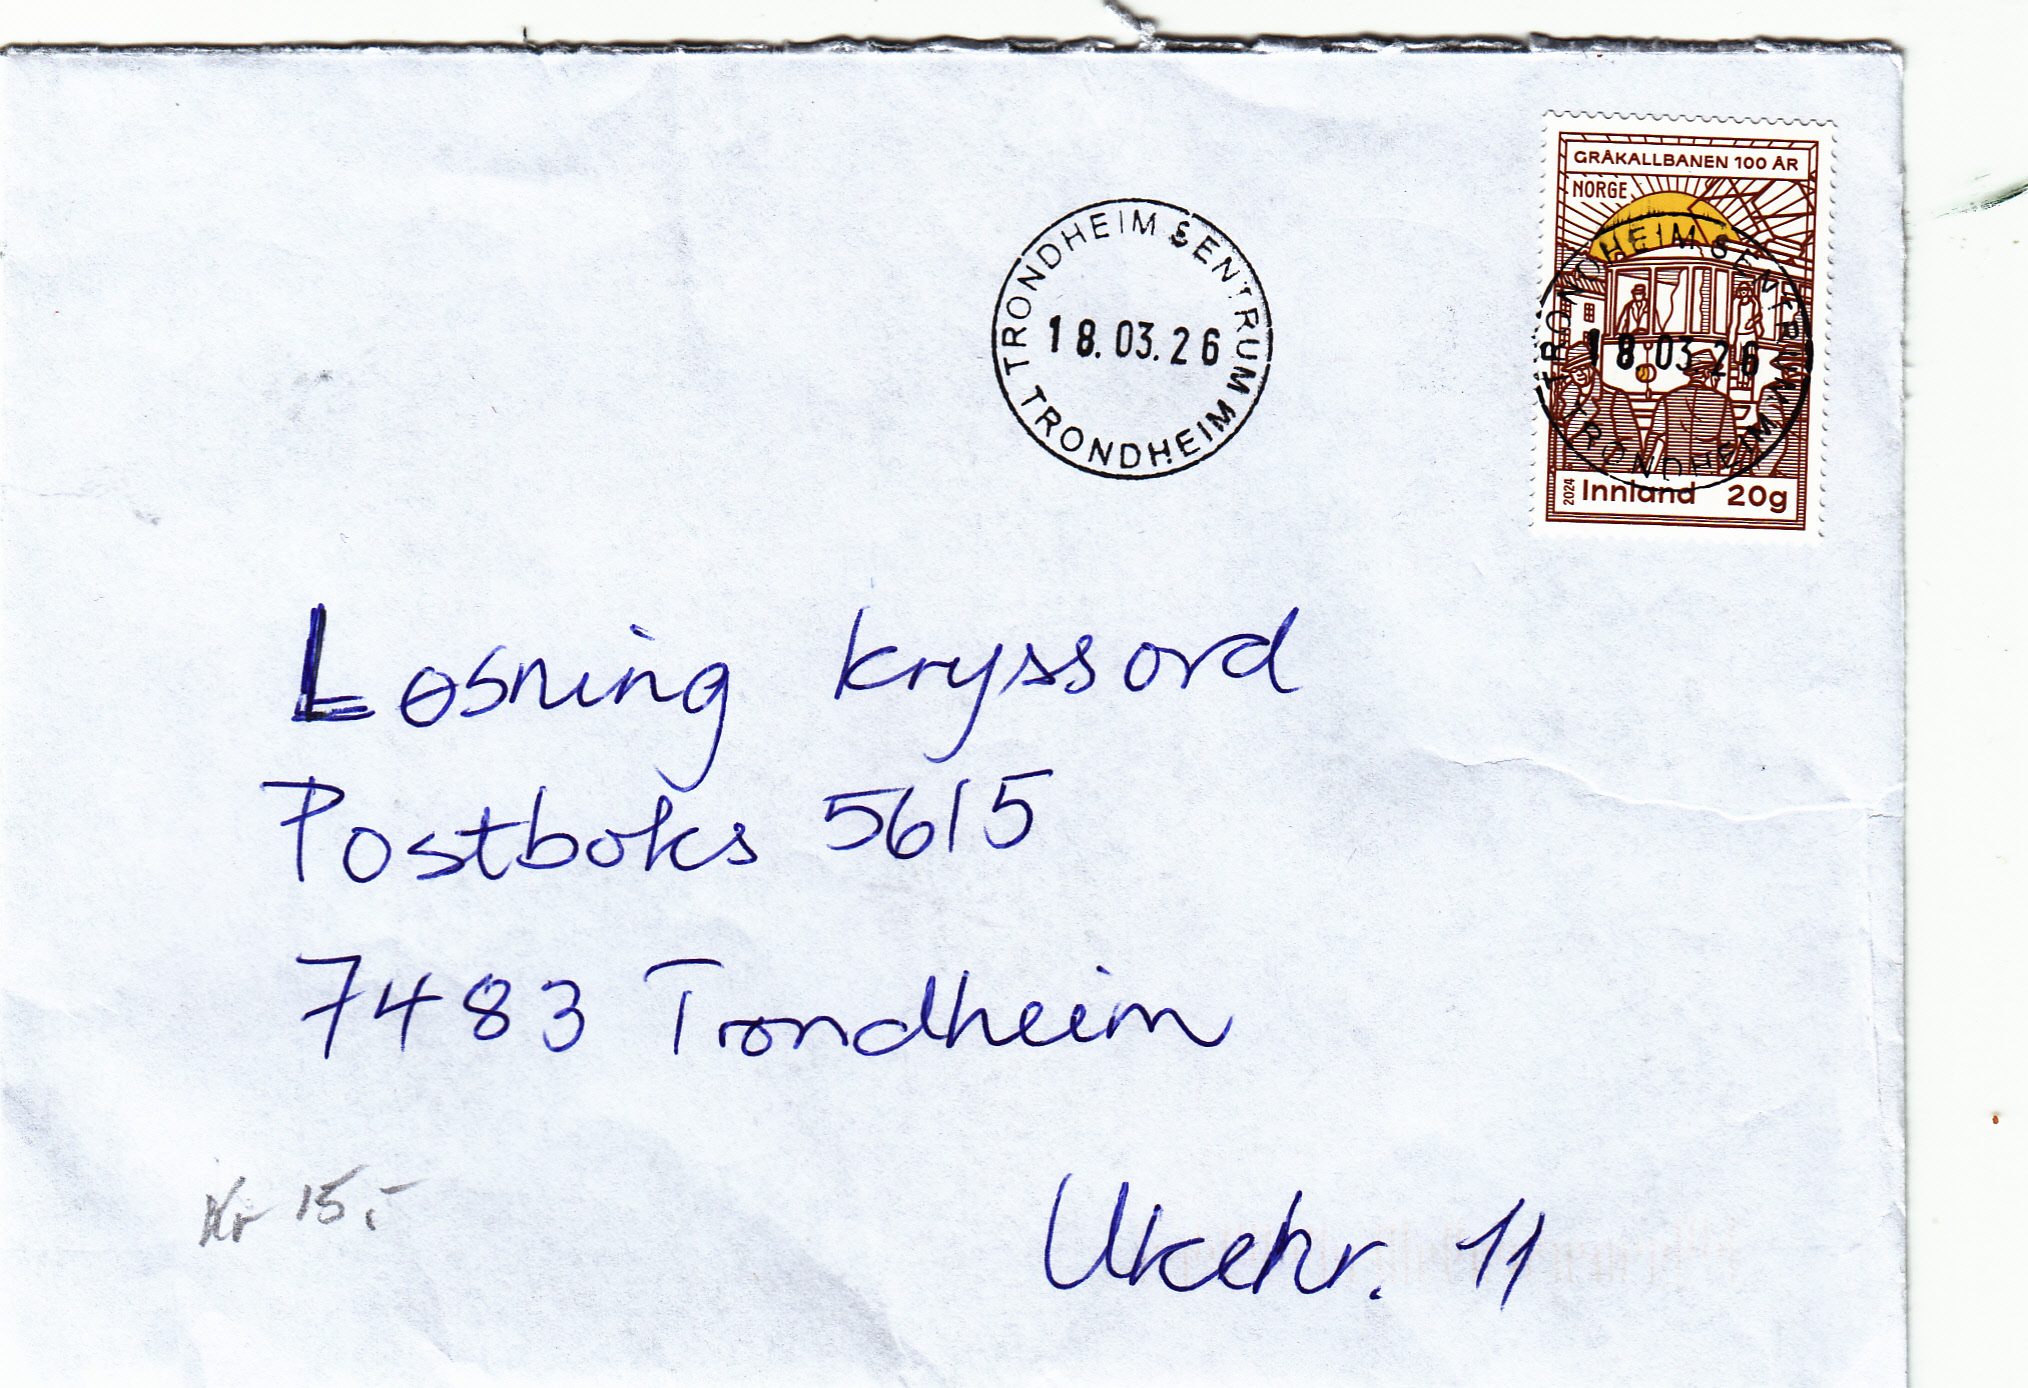 TRONDHEIM SENTRUM
18.03.26
T TRONDHEIM M
GRÅKALLBANEN 100 ÅR
NORGE
TRONDHEIM SENTRUM
18.03.26
TRONDHEIM
2024 Innland 20g
Løsning kryssord
Postboks 5615
7483 Trondheim
Kr 15,-
Ukenr. 11